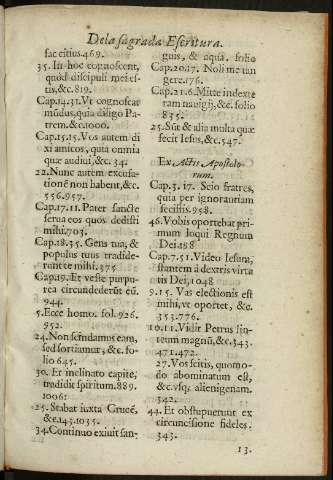 De la sagrada Escritura.
fac citius.469.
35. In hoc cognoscent,
quòd discipuli mei es-
tis, &c.819.
Cap.14.31.Vt cognoscat
mũdus, quia diligo Pa-
trem.&c.1000.
Cap.15.15.Vos autem di
xi amicos, quia omnia
quæ audiui, &c. 34.
22.Nunc autem excusa-
tionē non habent, &c.
556.957.
Cap.17.11.Pater sancte
serua eos quos dedisti
mihi.703.
Cap.18.35. Gens tua, &
populus tuus tradide-
runt te mihi.375
Cap.19.Et veste purpu-
rea circundederũt eũ.
944.
5.Ecce homo. fol.926.
952.
24.Non scindamus eam,
sed sortiamur, &c. fo-
lio 645.
30. Et inclinato capite,
tradidit spiritum.889.
1006:
25. Stabat iuxta Crucē,
&c.143.1035.
34.Continuo exiuit san-
guis, & aqua. folio
Cap.20.17. Noli me tan
gere.176.
Cap.21.6.Mitte in dexte
ram nauigij, &c. folio
835.
25.Sũt & alia multa quæ
fecit Iesus, &c.547.
Ex Actis Apostolo-
rum.
Cap.3. 17. Scio fratres,
quia per ignorantiam
fecistis.958.
46.Vobis oportebat pri-
mum loqui Regnum
Dei.488
Cap.7.51.Video Iesum,
stantem à dextris virtu
tis Dei, 1048
9.15. Vas electionis est
mihi, vt oportet, &c.
353.776.
10.11.Vidit Petrus lin-
teum magnũ, &c.343.
471.472.
27.Vos scitis, quomo-
do abominatum est,
&c.vsq; alienigenam.
342.
44. Et obstupuerunt ex
circuncisione fideles.
343.
13.